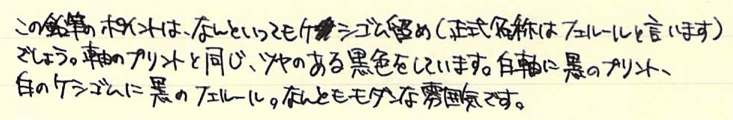 この鉛筆のポイントは、なんといってもケシゴム留め(正式名称はフェルールと言います)
でしょう。軸のプリントと同じ、ツヤのある黒色をしています。白軸に黒のプリント、
白のケシゴムに黒のフェルール。なんともモダンな雰囲気です。